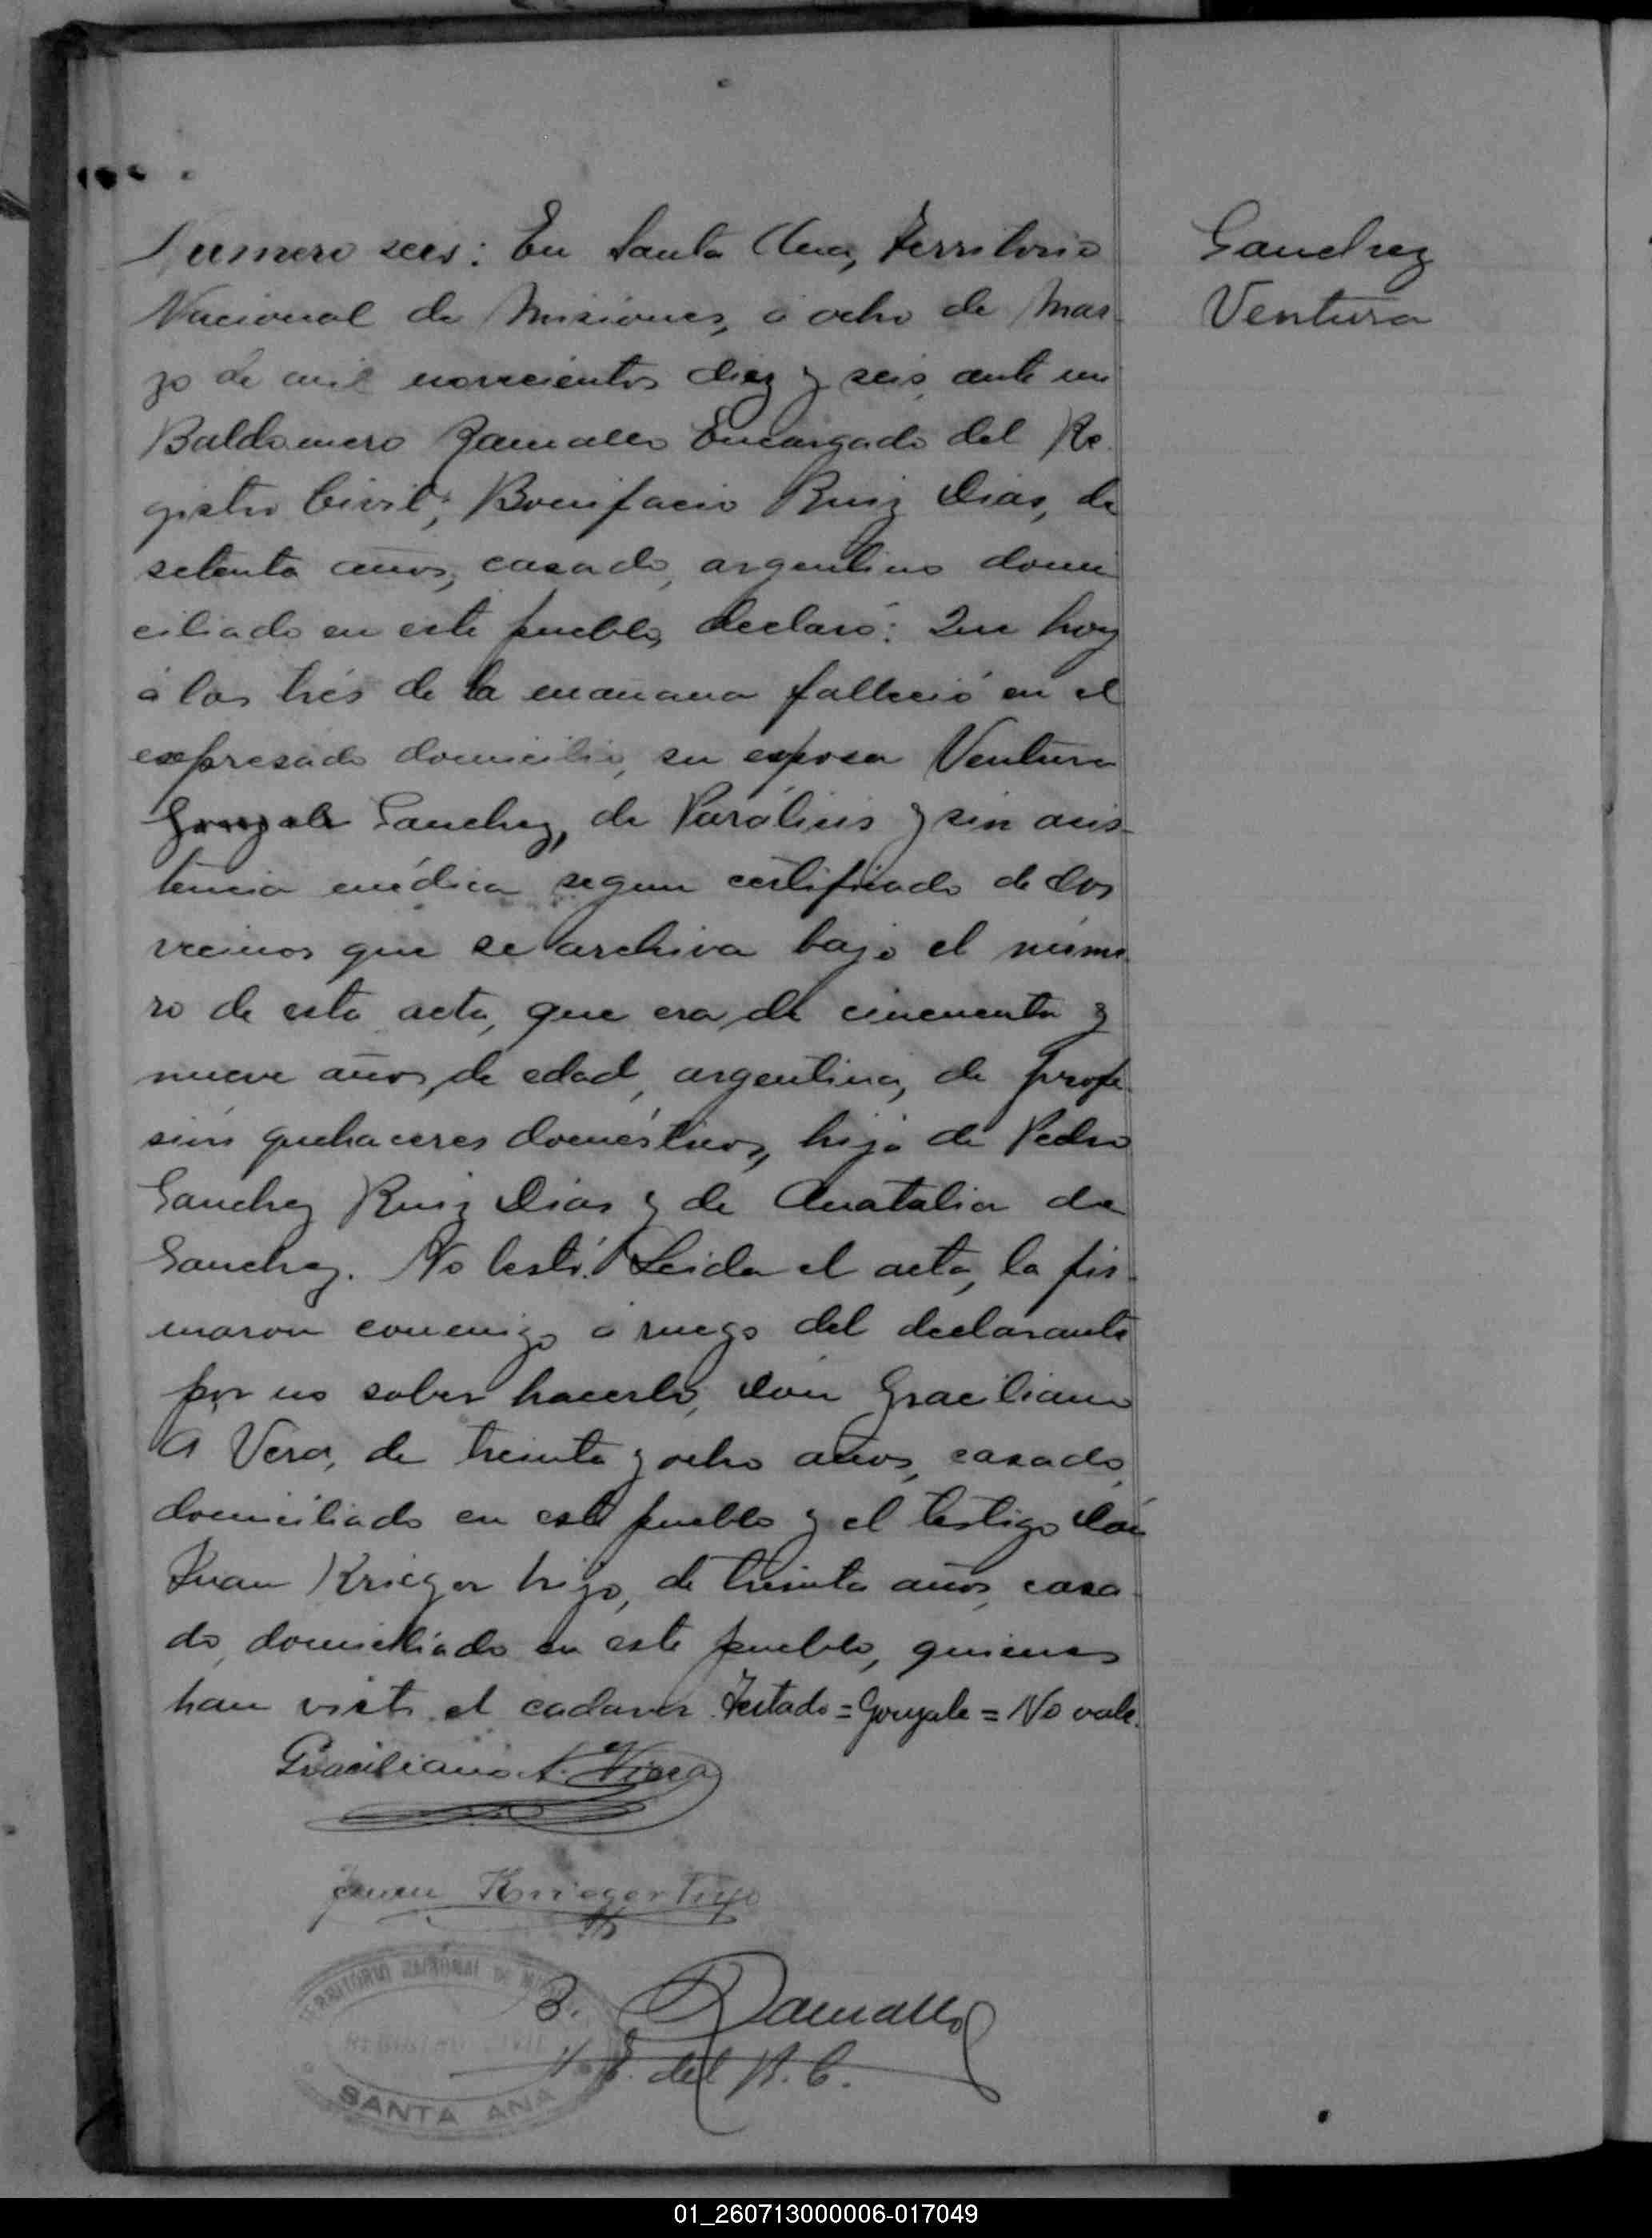 Numero seis: En Santa Ana, Territorio
Nacional de Misiones, á ocho de Mar-
zo de mil novecientos diez y seis, ante mi
Baldomero Ramallo Encargado del Re-
gistro Civil; Bonifacio Ruiz Dias, de
setenta años, casado, argentino domi
ciliado en este pueblo, declaró: Que hoy
á las trés de la mañana falleció en el
expresado domicilio, su esposa Ventura
Gonzale Sanchez, de Parálisis y sin asis-
tencia médica segun certificado de dos
vecinos que se archiva bajo el núme-
ro de esta acta, que era de cincuenta y
nueve años de edad, argentina, de profe-
sión quehaceres domésticos, hija de Pedro
Sanchez Ruiz Dias y de Anatalia de
Sanchez. No testó. Leida el acta, la fir-
maron conmigo á ruego del declarante
por no saber hacerlo, don Graciliano
A Vera, de treinta y ocho años, casado,
domiciliado en este pueblo y el testigo don
Juan Krieger hijo, de treinta años, casa-
do, domiciliado en este pueblo, quienes
han visto el cadaver. Testado = Gonzale = No vale.
Graciliano A. Vera
Juan Krieger hijo
B. Ramallo
E. del R. C.
TERRITORIO NACIONAL DE
SANTA ANA
Sanchez
Ventura
01_260713000006-017049